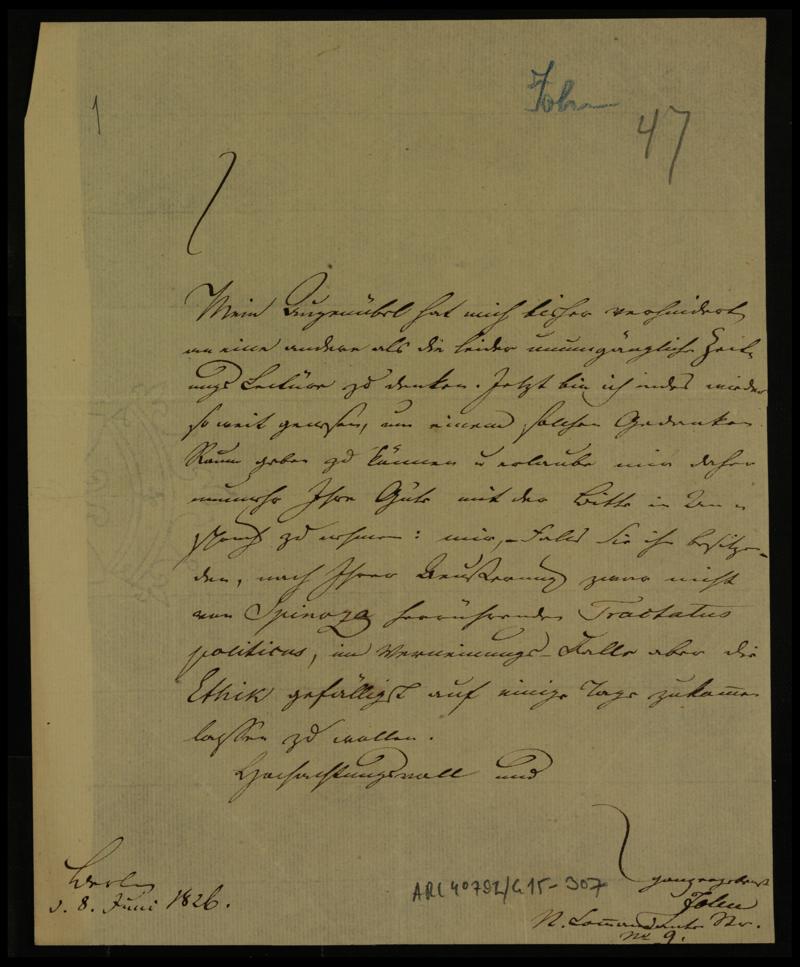 1
John
47
Mein Augenübel hat mich bisher verhindert
an eine andere als die leider unumgängliche Zeit-
ungs Lectüre zu denken. Jetzt bin ich indes wieder
so weit genesen, um einem solchen Gedanken
Raum geben zu können u erlaube mir daher
nunmehr Ihre Güte mit der Bitte in An-
spruch zu nehmen: mir, Falls Sie ihn besitzen
den, nach Ihrer Aeußerung zwar nicht
von Spinoza herrührenden Tractatus
politicus, im Verneinungs-Falle aber die
Ethik gefälligst auf einige Tage zukommen
lassen zu wollen.
Hochachtungsvoll und
ganz ergebenst
Berlin
d. 8. Juni 1826.
John
N. Commandanten Str.
No 9.